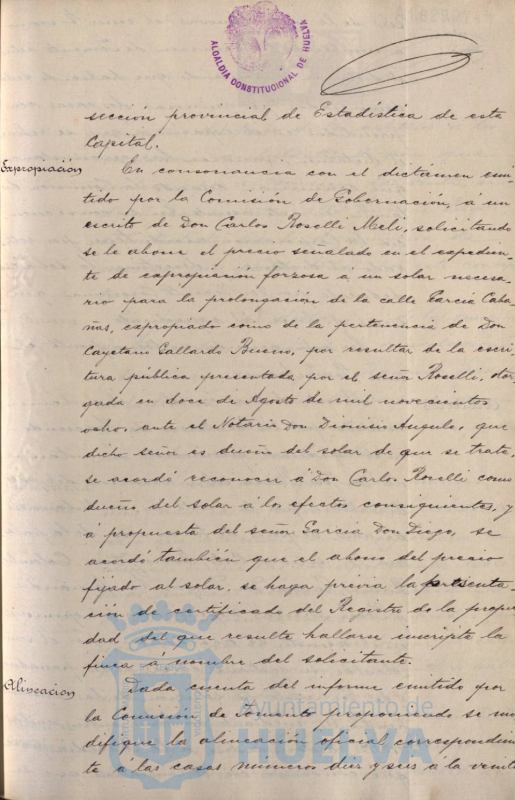 ALCALDIA CONSTITUCIONAL DE HUELVA
sección provincial de Estadística de esta
Capital.
Expropiación
En consonancia con el dictámen emi-
tido por la Comisión de Gobernación, á un
escrito de Don Carlos Roselli Meli, solicitando
se le abone el precio señalado en el expedien-
te de expropiación forzosa á un solar necesa-
rio para la prolongación de la calle García Caba-
ñas, expropiado como de la pertenencia de Don
Cayetano Gallardo Bueno, por resultar de la escri-
tura pública presentada por el señor Roselli, otor-
gada en doce de Agosto de mil novecientos
ocho, ante el Notario Don Dionisio Angulo, que
dicho señor es dueño del solar de que se trata,
se acordó reconocer á Don Carlos Roselli como
dueño del solar á los efectos consiguientes, y
á propuesta del señor García Don Diego, se
acordó también que el abono del precio
fijado al solar, se haga previa la presenta-
ción de certificado del Registro de la propie
dad del que resulte hallarse inscripta la
finca á nombre del solicitante.
Alineacion
Dada cuenta del informe emitido por
la Comisión de Fomento proponiendo se mo
difique la alineación oficial correspondien
te á las casas números diez y seis á la veinte
Ayuntamiento de
HUELVA